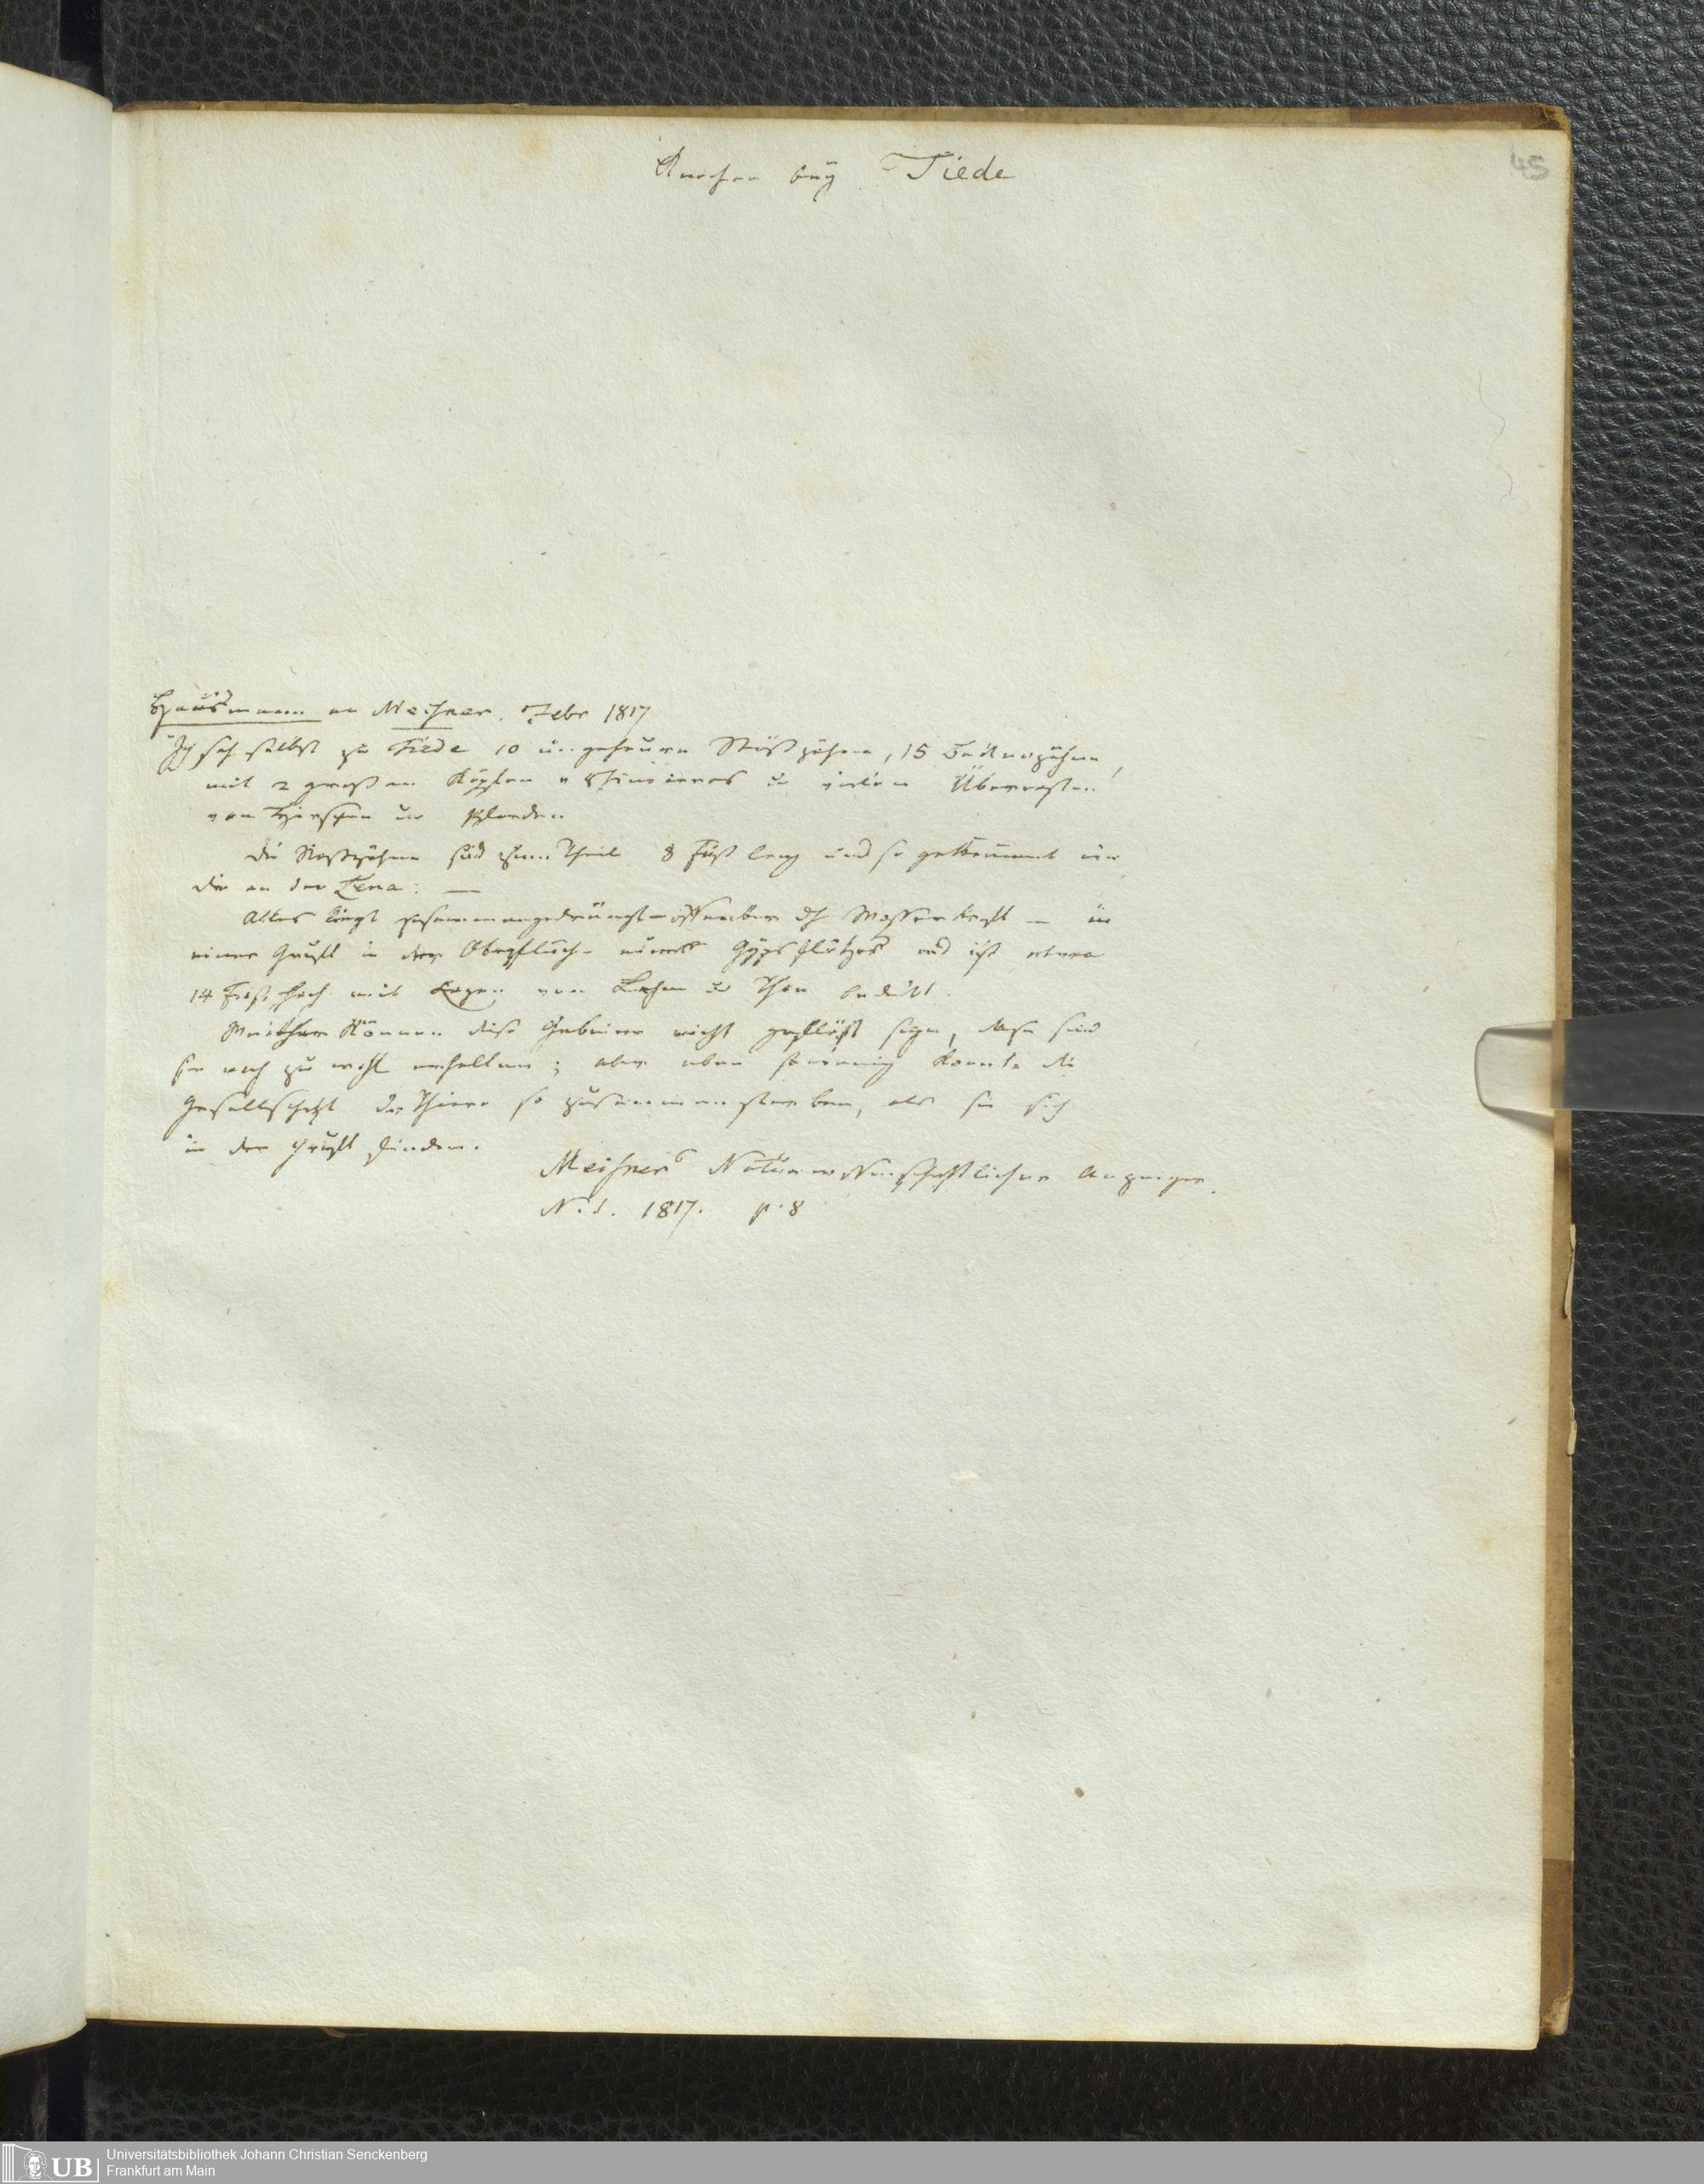 Knochen bey Tiede
45
Hausmann an Meisner. Febr 1817
Ich sah selbst zu Tiede 10 ungeheure Stoßzähne, 15 Backenzähne,
mit 2 großen Köpfen v Rhinoceros u vielen Überresten
von Hirschen u Pferden.
Die Stoßzähne sind zum Theil 8 Fuß lang und so gekrümmt wie
die an der Lena: —
Alles liegt zusammengedrängt – offenbar dch Wasserkraft — in
einer Gruft in der Oberfläche eines Gypsflötzes und ist etwa
14 Fuß hoch mit Lagen von Lehm u Thon bedeckt.
Weither können diese Gebeine nicht geflößt seyn, dafür sind
sie noch zu wohl erhalten; aber eben so wenig konnte die
Gesellschaft der Thiere so zusammen sterben, als sie sich
in der Gruft finden.
Meisners Naturwissenschaftlicher Anzeiger.
N. 1. 1817. p. 8
UB
Universitätsbibliothek Johann Christian Senckenberg
Frankfurt am Main